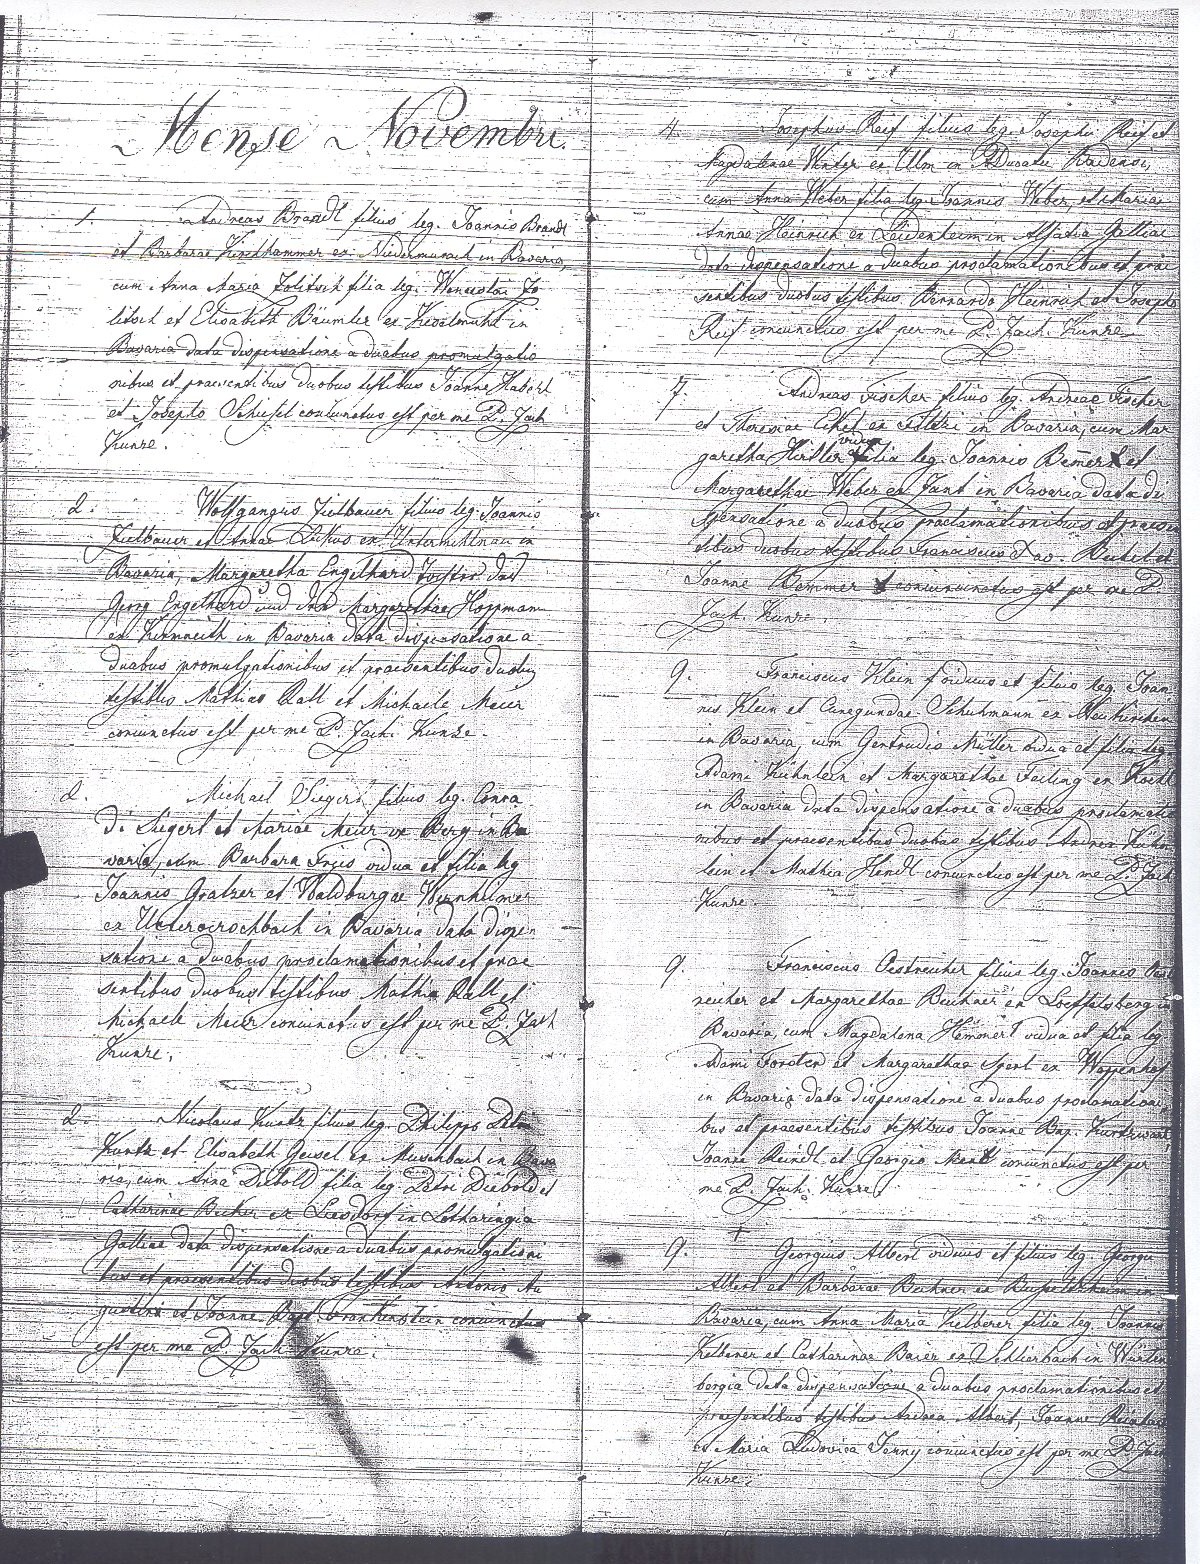 Mense Novembri.
1. Andreas Brandl filius leg. Joannis Brandl
et Barbarae Kirchhammer ex Niedermurach in Bavaria,
cum Anna Maria Zolitsch filia leg. Wenceslai Zo
litsch et Elisabeth Bäumler ex in
Bavaria data dispensatione a duabus promulgatio
nibus et praesentibus duobus testibus Joanne
et Josepho coniunctus est per me P. Zach
Kunze.
2. Wolfgangus Zielbauer filius leg. Joannis
Zielbauer et Annae ex in
Bavaria, Margaretha Engelhard Tochter des
Georg Engelhard und der Margarethae Hoffmann
ex Kirmreith in Bavaria data dispensatione a
duabus promulgationibus et praesentibus duobus
testibus Mathias Rall et Michaele Meier
coniunctus est per me P. Zach. Kunze.
2. Michael Siegert filius leg. Conra
di Siegert et Mariae Meier ex Berg in Ba
varia, cum Barbara vidua et filia leg
Joannis Gratzer et Waldburgae
ex in Bavaria data dispen
satione a duabus proclamationibus et prae
sentibus duobus testibus Mathia Rall et
Michaele Meier coniunctus est per me P. Zach
Kunze.
2. Nicolaus Kurtz filius leg. Philippi Petri
Kurtz et Elisabeth Geisel ex Muschbach in Bava
ria, cum Anna Diebold filia leg Petri Diebold et
Catharinae Becker ex in Lotharingia
Galliae data dispensatione a duabus promulgationi
bus et praesentibus duobus testibus Antonio Au
gustin et Joanne Bapt Frankenstein coniunctus
est per me P. Zach Kunze.
4. Josephus Reif filius leg. Josephi Reif et
Magdalenae ex Ulm in Ducatu Badensi,
cum Anna Weber filia leg. Joannis Weber, et Mariae
Annae Heinrich ex Leidenheim in Alsatia Galliae
data dispensatione a duabus proclamationibus et prae
sentibus duobus testibus Bernardo Heinrich et Josepho
Reif coniunctus est per me P. Zach. Kunze
7. Andreas Fischer filius leg. Andreae Fischer
et ex in Bavaria, cum Mar
garetha Hertler vidua filia leg. Joannis et
Margarethae Weber ex in Bavaria data di
spensatione a duabus proclamationibus et praesen
tibus duobus testibus Franciscus Xav. et
Joanne coniunctus est per me P.
Zach. Kunze.
9. Franciscus Klein viduus et filius leg. Joan
nis Klein et Cunegundae Schuhmann ex Neukirchen
in Bavaria, cum Gertrudis Müller vidua et filia leg
Adami Kühnlein et Margarethae ex
in Bavaria data dispensatione a duabus proclamatio
nibus et praesentibus duobus testibus Andrea Kühn
lein et Mathia Hendl coniunctus est per me P. Zach
Kunze.
9. Franciscus Oestreicher filius leg. Joannis Oest
reicher et Margarethae Buchner ex Loeffelsberg in
Bavaria, cum Magdalena Hemmert vidua et filia leg
Adami Forster et Margarethae ex
in Bavaria data dispensatione a duabus proclamationi
bus et praesentibus testibus Joanne Bap.
Joanne Reindl et Georgio coniunctus est per
me P. Zach. Kunze.
+
9. Georgius Albert viduus et filius leg. Georgii
Albert et Barbarae Buchner ex in
Bavaria, cum Anna Maria Kelberer filia leg. Joannis
Kelberer et Catharinae Baier ex Schlierbach in Würtem
bergia data dispensatione a duabus proclamationibus et
praesentibus testibus Andrea Albert, Joanne
et Maria Ludovica Jenny coniunctus est per me P. Zach
Kunze.